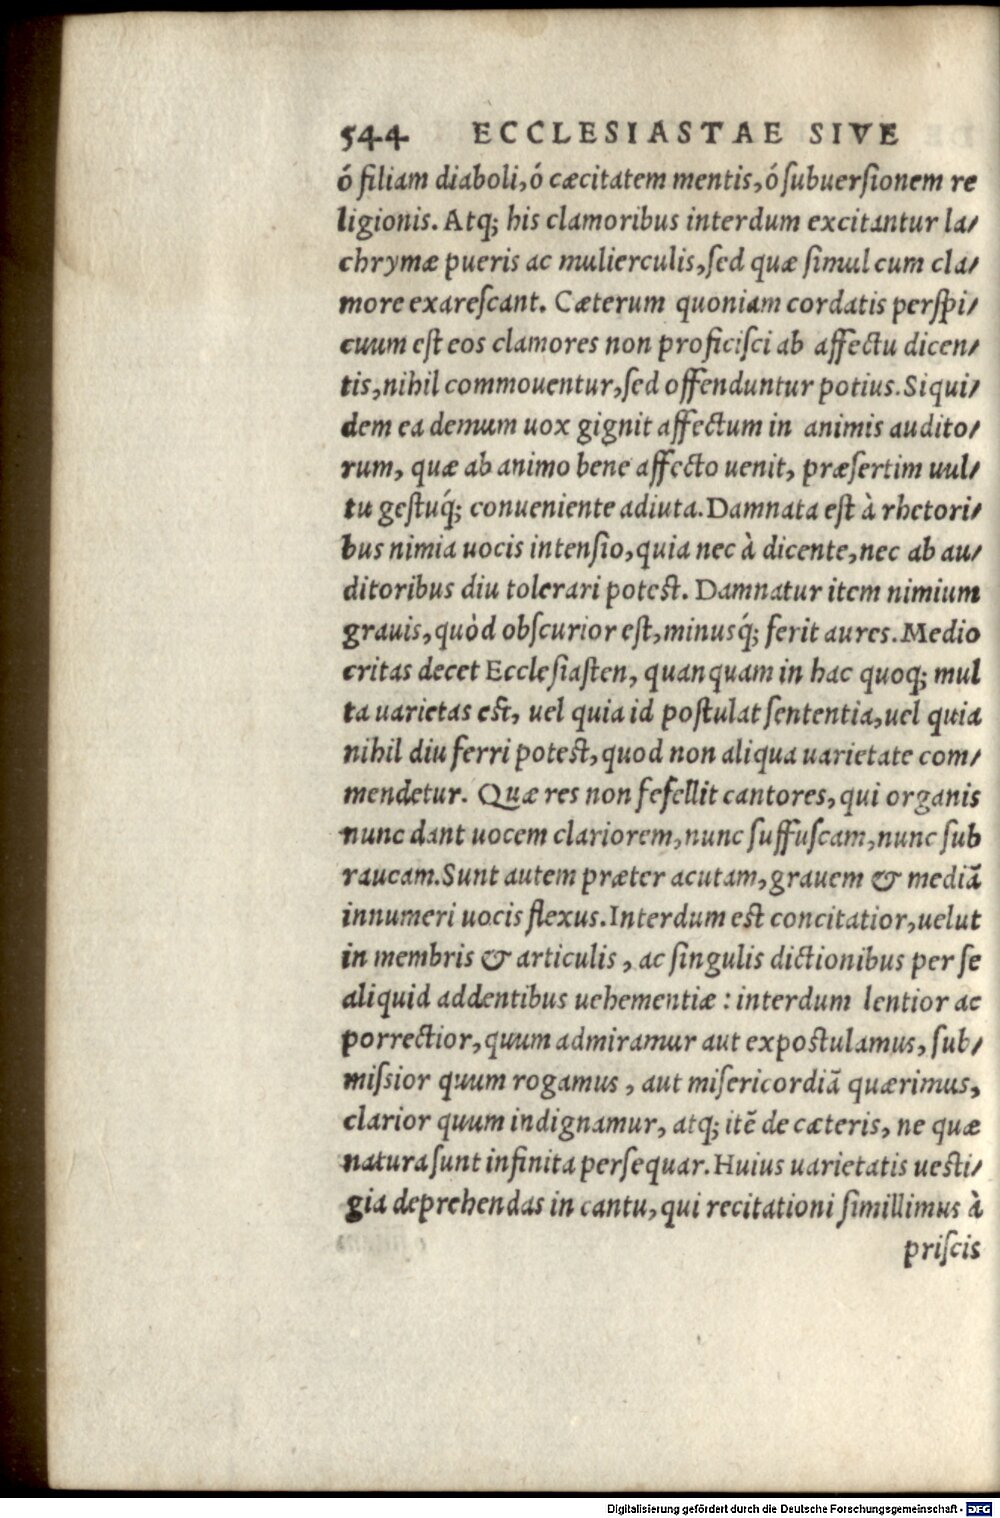 544 ECCLESIASTAE SIVE
ó filiam diaboli, ó cæcitatem mentis, ó ſubuerſionem re
ligionis. Atq; his clamoribus interdum excitantur la/
chrymæ pueris ac mulierculis, ſed quæ ſimul cum cla/
more exareſcant. Cæterum quoniam cordatis perſpi/
cuum eſt eos clamores non proficiſci ab affectu dicen/
tis, nihil commouentur, ſed offenduntur potius. Siqui/
dem ea demum uox gignit affectum in animis audito/
rum, quæ ab animo bene affecto uenit, præſertim uul/
tu geſtuq́; conueniente adiuta. Damnata eſt à rhetori/
bus nimia uocis intenſio, quia nec à dicente, nec ab au/
ditoribus diu tolerari poteſt. Damnatur item nimium
grauis, quòd obſcurior eſt, minusq́; ferit aures. Medio
critas decet Eccleſiaſten, quanquam in hac quoq; mul
ta uarietas eſt, uel quia id poſtulat ſententia, uel quia
nihil diu ferri poteſt, quod non aliqua uarietate com/
mendetur. Quæ res non fefellit cantores, qui organis
nunc dant uocem clariorem, nunc ſuffuſcam, nunc ſub
raucam. Sunt autem præter acutam, grauem & mediā
innumeri uocis flexus. Interdum eſt concitatior, uelut
in membris & articulis, ac ſingulis dictionibus per ſe
aliquid addentibus uehementiæ: interdum lentior ac
porrectior, quum admiramur aut expoſtulamus, ſub/
miſsior quum rogamus, aut miſericordiā quærimus,
clarior quum indignamur, atq; itē de cæteris, ne quæ
natura ſunt infinita perſequar. Huius uarietatis ueſti/
gia deprehendas in cantu, qui recitationi ſimillimus à
priſcis
Digitalisierung gefördert durch die Deutsche Forschungsgemeinschaft - DFG